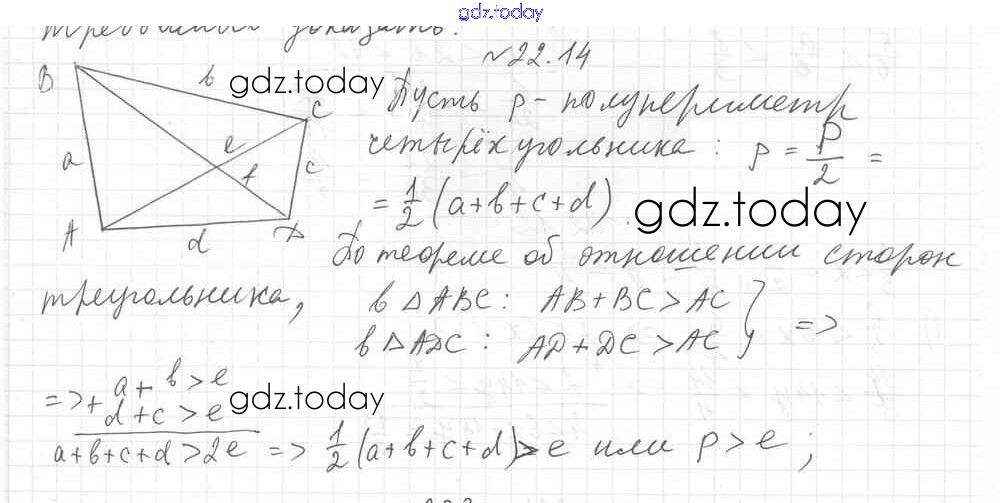 gdz.today
требовалось доказать.
№22.14
B b C a e f c A d D
gdz.today
Пусть p - полупериметр
четырёхугольника: p = P/2 =
= 1/2 (a+b+c+d).
gdz.today
По теореме об отношении сторон
треугольника, в △ABC: AB+BC>AC
в △ADC: AD+DC>AC } =>
=> + a+b>e
d+c>e
gdz.today
a+b+c+d>2e => 1/2 (a+b+c+d)>e или p>e;